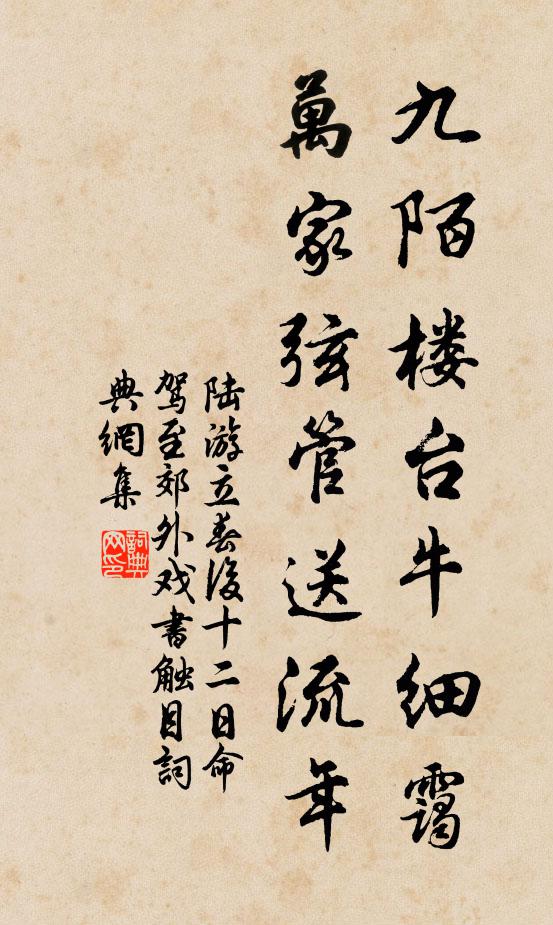 九陌楼台牛细霭
萬家弦管送流年
陆游立春後十二日命
驾至郊外戏書触目詞
典網集
詞典
网印